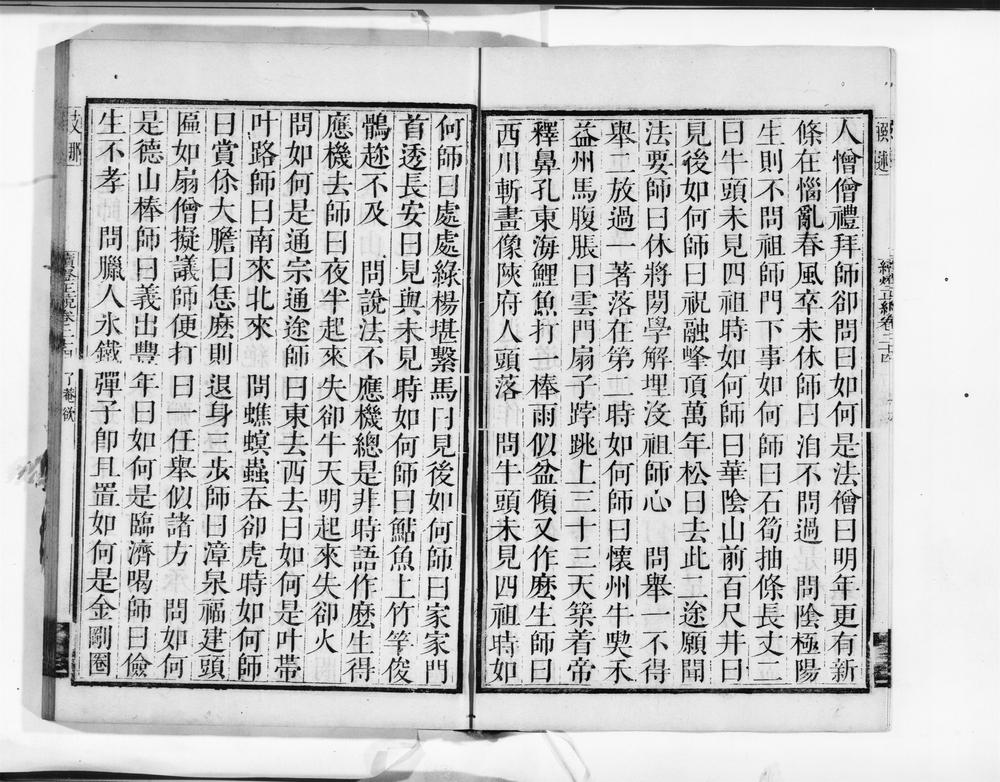 人憎僧禮拜師卻問曰如何是法僧曰明年更有新
條在惱亂春風卒未休師曰洎不問過　問陰極陽
生則不問祖師門下事如何師曰石筍抽條長丈二
曰牛頭未見四祖時如何師曰華陰山前百尺井曰
見後如何師曰祝融峰頂萬年松曰去此二途願聞
法要師曰休將閑學解埋沒祖師心　問舉一不得
舉二放過一著落在第二時如何師曰懷州牛喫禾
益州馬腹脹曰雲門扇子𨁝跳上三十三天築着帝
釋鼻孔東海鯉魚打一棒雨似盆傾又作麼生師曰
西川斬畫像陝府人頭落　問牛頭未見四祖時如
何師曰處處綠楊堪繫馬曰見後如何師曰家家門
首透長安曰見與未見時如何師曰鮎魚上竹竿俊
鶻趂不及　問說法不應機總是非時語作麼生得
應機去師曰夜半起來失卻牛天明起來失卻火
問如何是通宗通途師曰東去西去曰如何是叶帶
叶路師曰南來北來　問蟭螟蟲吞卻虎時如何師
曰賞你大膽曰恁麼則退身三步師曰漳泉福建頭
匾如扇僧擬議師便打曰一任舉似諸方　問如何
是德山棒師曰義出豐年曰如何是臨濟喝師曰儉
生不孝　問臘人氷鐵彈子卽且置如何是金剛圈
續燈正統卷二十四
了菴欲